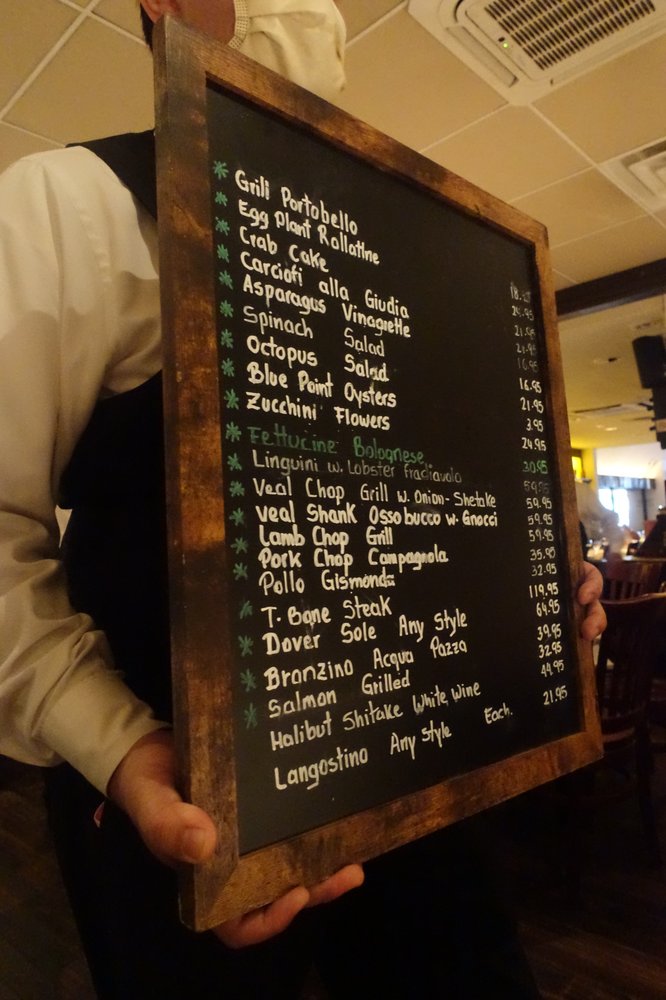 Grill Portobello
Egg Plant Rollatine 24.95
Crab Cake 21.95
Carciofi alla Giudia 21.95
Asparagus Vinagrette 16.95
Spinach Salad 16.95
Octopus Salad 21.95
Blue Point Oysters 3.95
Zucchini Flowers 24.95
Fettucine Bolognese 30.95
Linguini w. Lobster Fradiavolo 59.95
Veal Chop Grill w. Onion-Shetake 59.95
Veal Shank Ossobucco w. Gnocci 59.95
Lamb Chop Grill 59.95
Pork Chop Campagnola 35.95
Pollo Gismonda 32.95
T. Bone Steak 119.95
Dover Sole Any Style 64.95
Branzino Acqua Pazza 39.95
Salmon Grilled 32.95
Halibut Shitake White Wine 49.95
Langostino Any style Each. 21.95